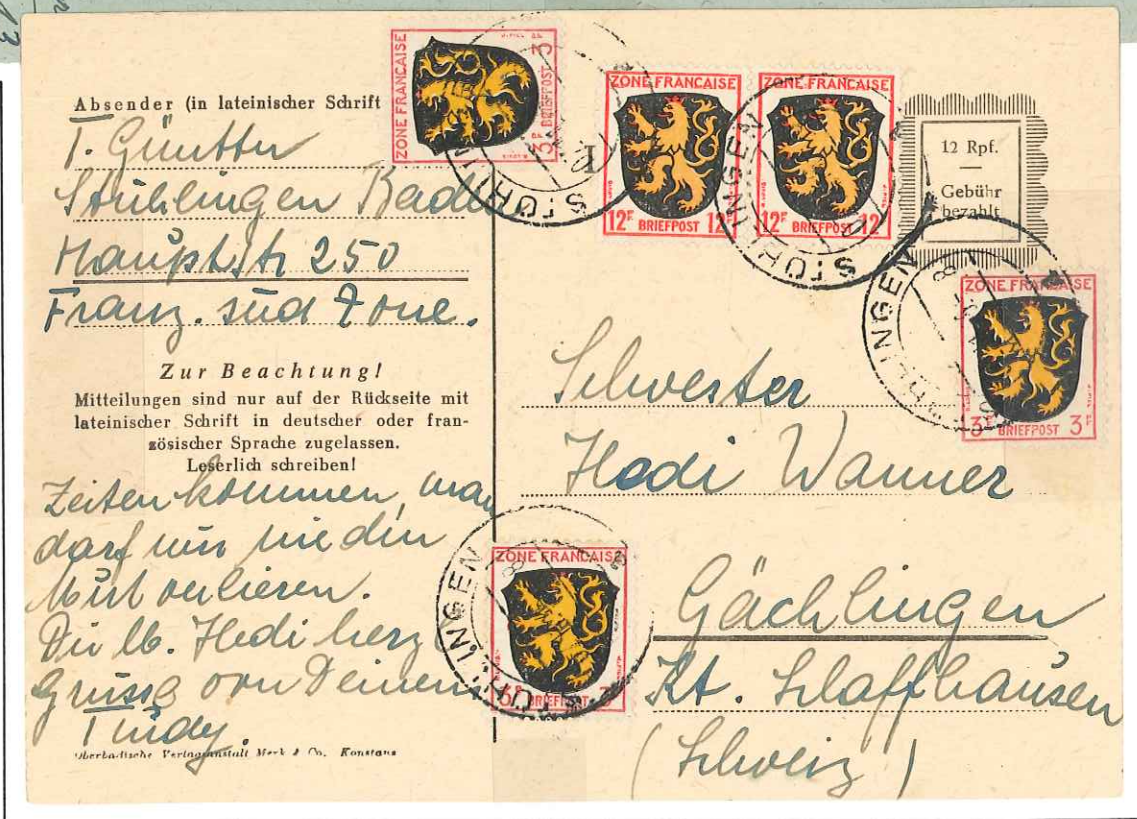 Absender (in lateinischer Schrift
T. Günther
Stühlingen Baden
Hauptstr 250
Franz. süd Zone.
Zur Beachtung!
Mitteilungen sind nur auf der Rückseite mit
lateinischer Schrift in deutscher oder fran-
zösischer Sprache zugelassen.
Leserlich schreiben!
Zeiten kommen, man
darf nur nie den
Mut verlieren.
Dir lb. Hedi herz
Grüsse von Deinem
Trudy.
Oberbadische Verlagsanstalt Merk & Co., Konstanz
ZONE FRANCAISE
3F BRIEFPOST 3
ZONE FRANCAISE
12F BRIEFPOST 12F
ZONE FRANCAISE
12F BRIEFPOST 12F
12 Rpf.
Gebühr
bezahlt
ZONE FRANCAISE
3F BRIEFPOST 3F
ZONE FRANCAISE
3F BRIEFPOST 3F
STÜHLINGEN
STÜHLINGEN
STÜHLINGEN
STÜHLINGEN
Schwester
Hedi Wanner
Gächlingen
Kt. Schaffhausen
(Schweiz)